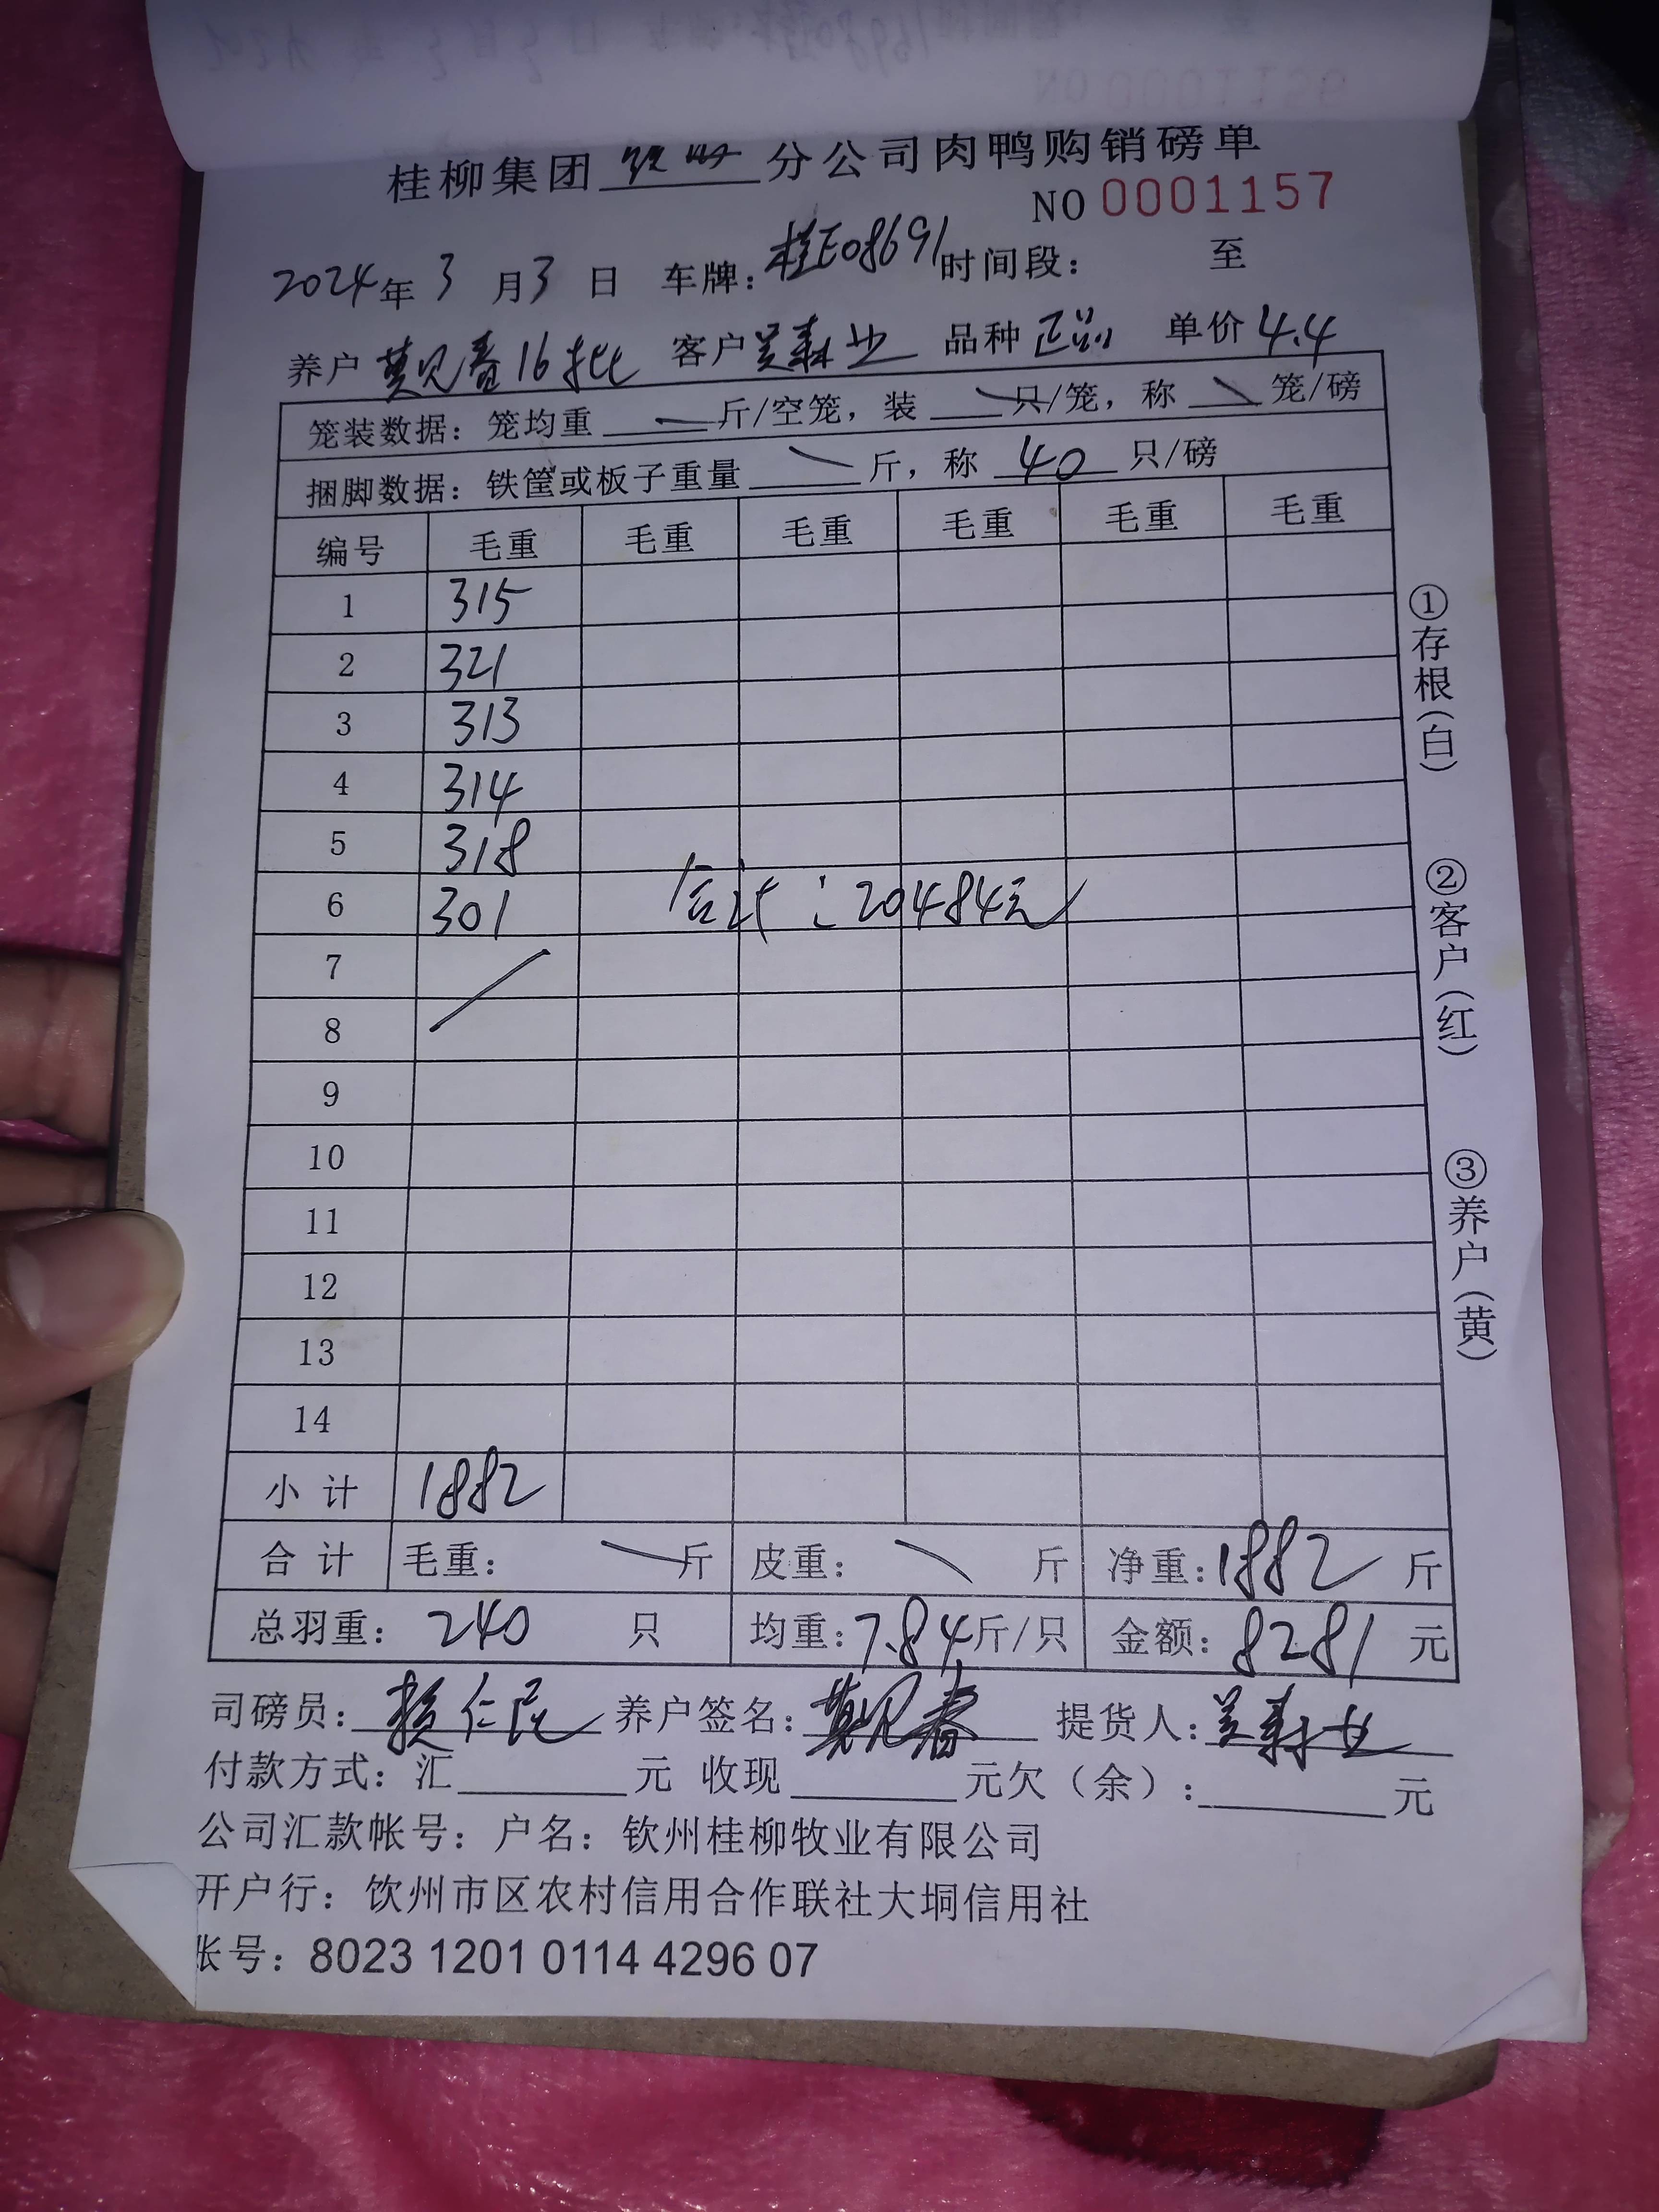 桂柳集团 钦州 分公司肉鸭购销磅单
NO 0001157
2024年 3 月 3 日 车牌：桂E08691 时间段： 至
养户 莫见春16批 客户 吴寿业 品种 正品 单价 4.4
笼装数据：笼均重 斤/空笼，装 只/笼，称 笼/磅
捆脚数据：铁筐或板子重量 斤，称 40 只/磅
编号 毛重 毛重 毛重 毛重 毛重 毛重
1 315
2 321
3 313
4 314
5 318
6 301 合计：20484元
7
8
9
10
11
12
13
14
小计 1882
合计 毛重： 斤 皮重： 斤 净重：1882 斤
总羽重： 240 只 均重：7.84斤/只 金额：8281 元
司磅员：赖仁民 养户签名：莫见春 提货人：吴寿业
付款方式：汇 元 收现 元欠（余）： 元
公司汇款帐号：户名：钦州桂柳牧业有限公司
开户行：饮州市区农村信用合作联社大垌信用社
账号：8023 1201 0114 4296 07
①存根（白）
②客户（红）
③养户（黄）